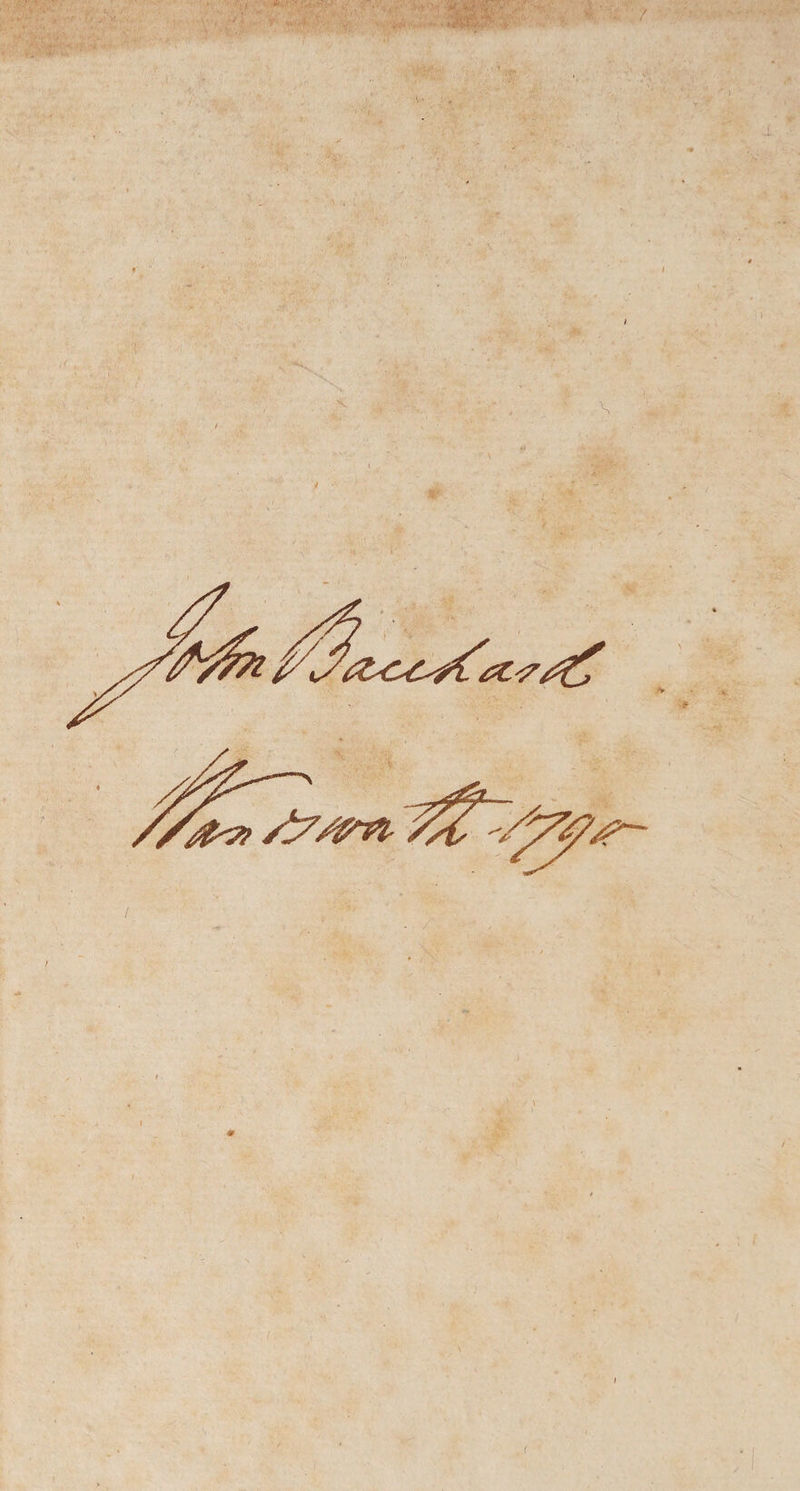 John Bacchard
Wandsworth 1790